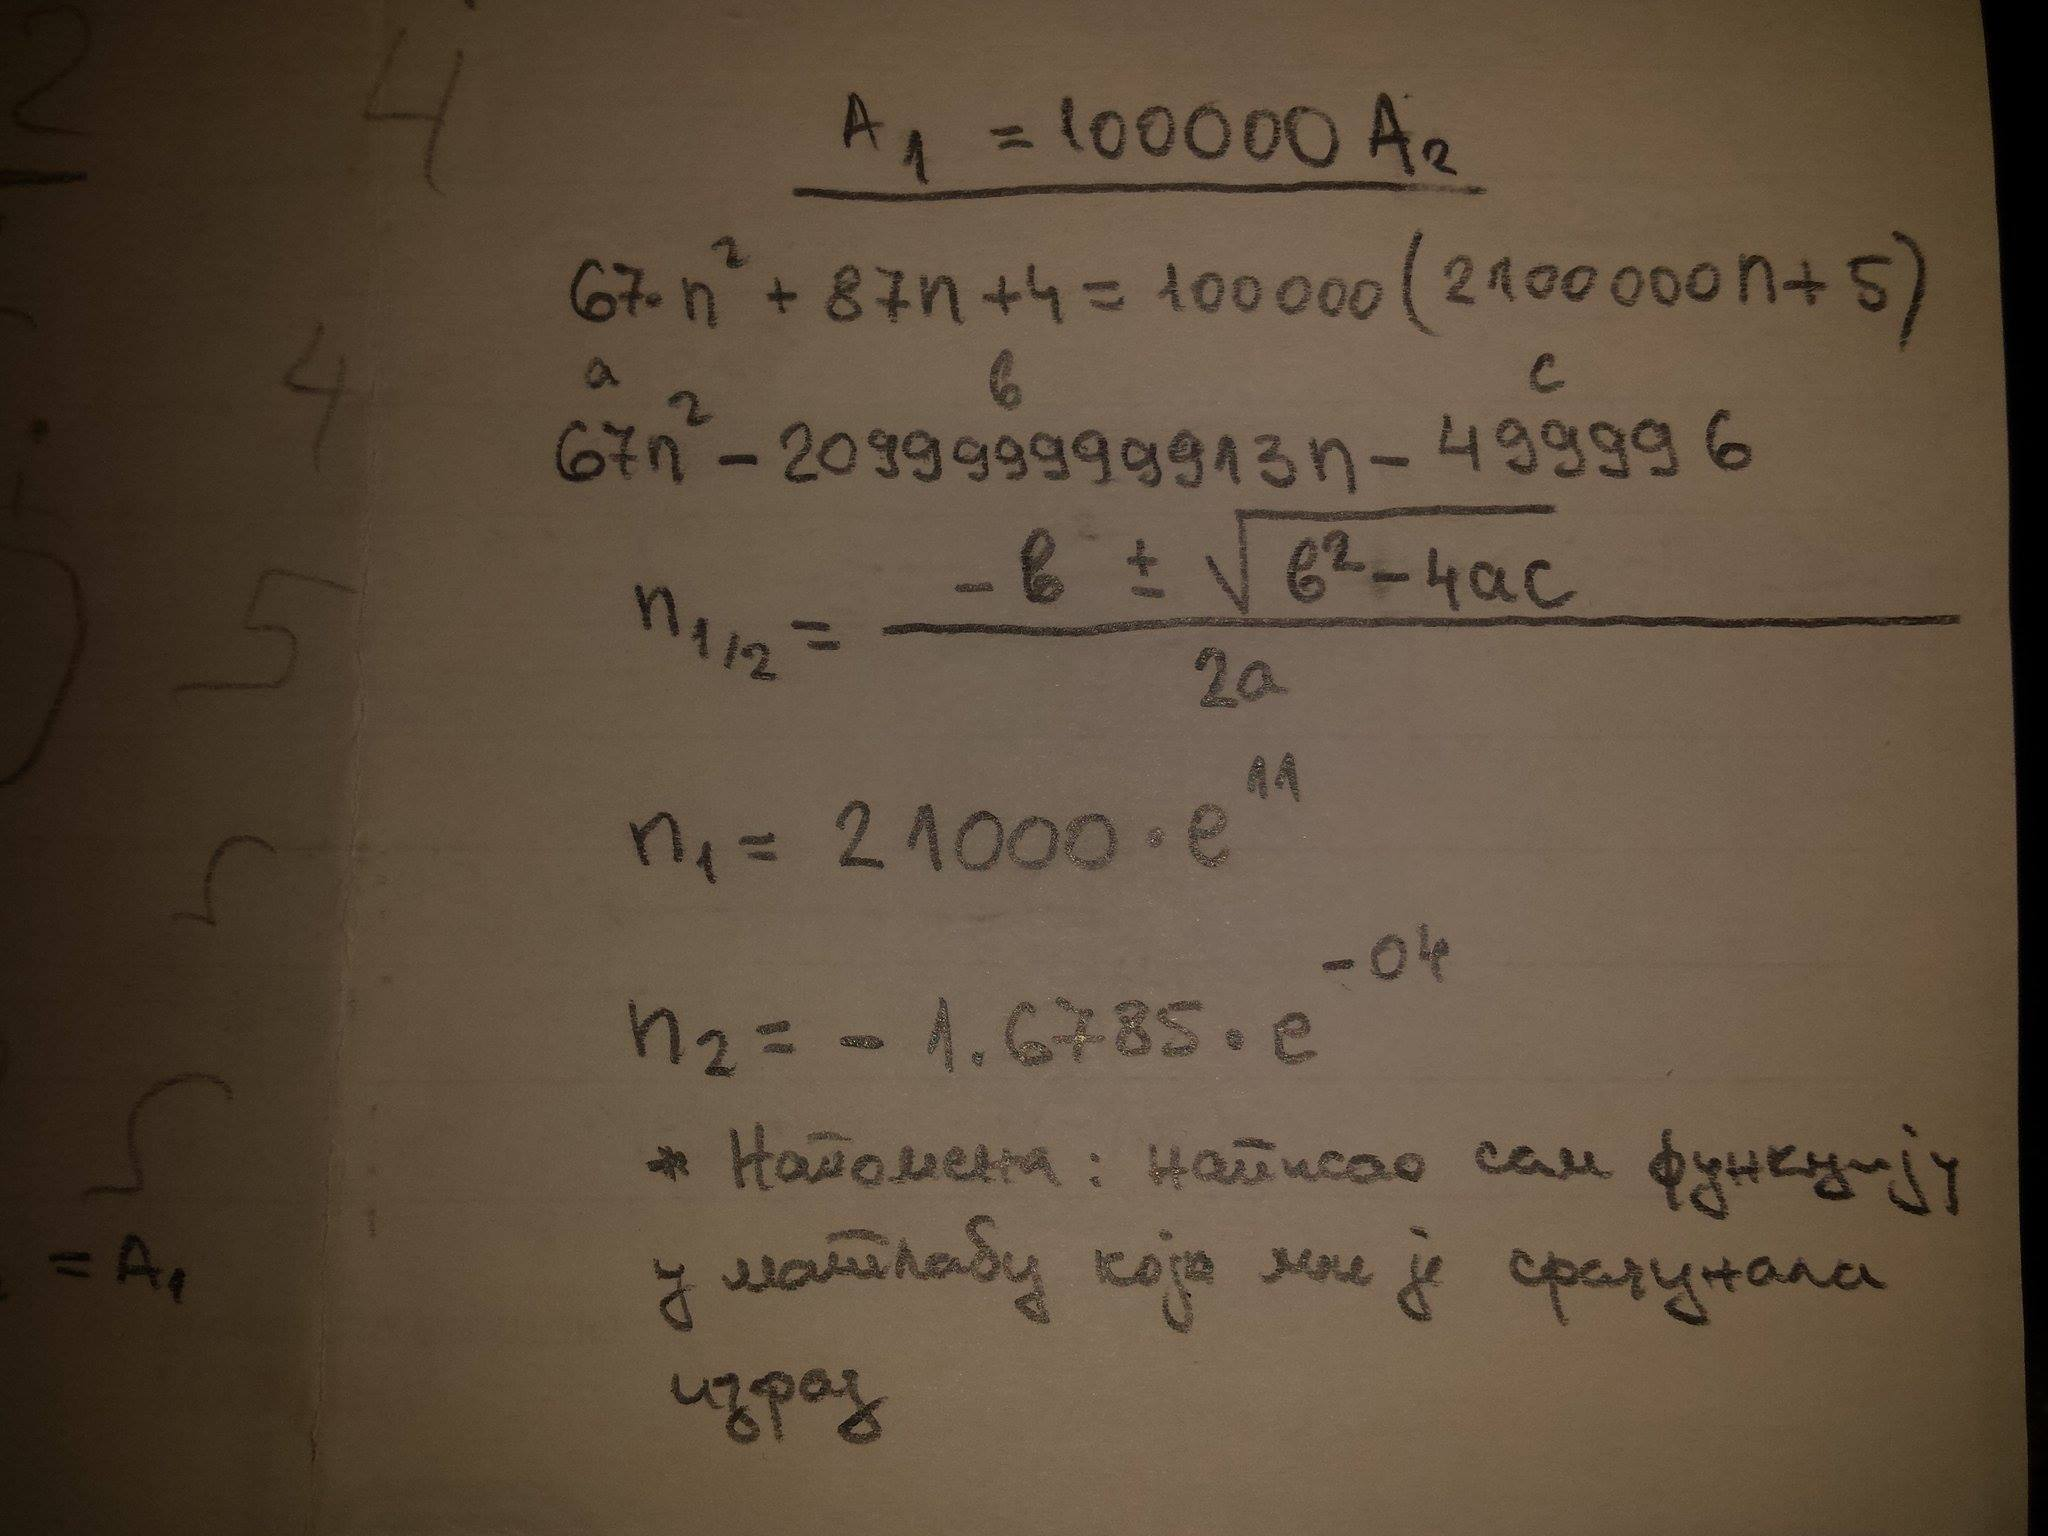 2
4
A₁ = 100000 A₂
67·n² + 87n + 4 = 100000(2100000n + 5)
a в c
4
67n² - 209999999913n - 499996
n₁/₂ = (-в ± √(в² - 4ac)) / 2a
5
n₁ = 21000 · e¹¹
n₂ = - 1.6785 · e⁻⁰⁴
* Напомена: написао сам функцију
у матлабу која ми је срачунала
= A₁
израз